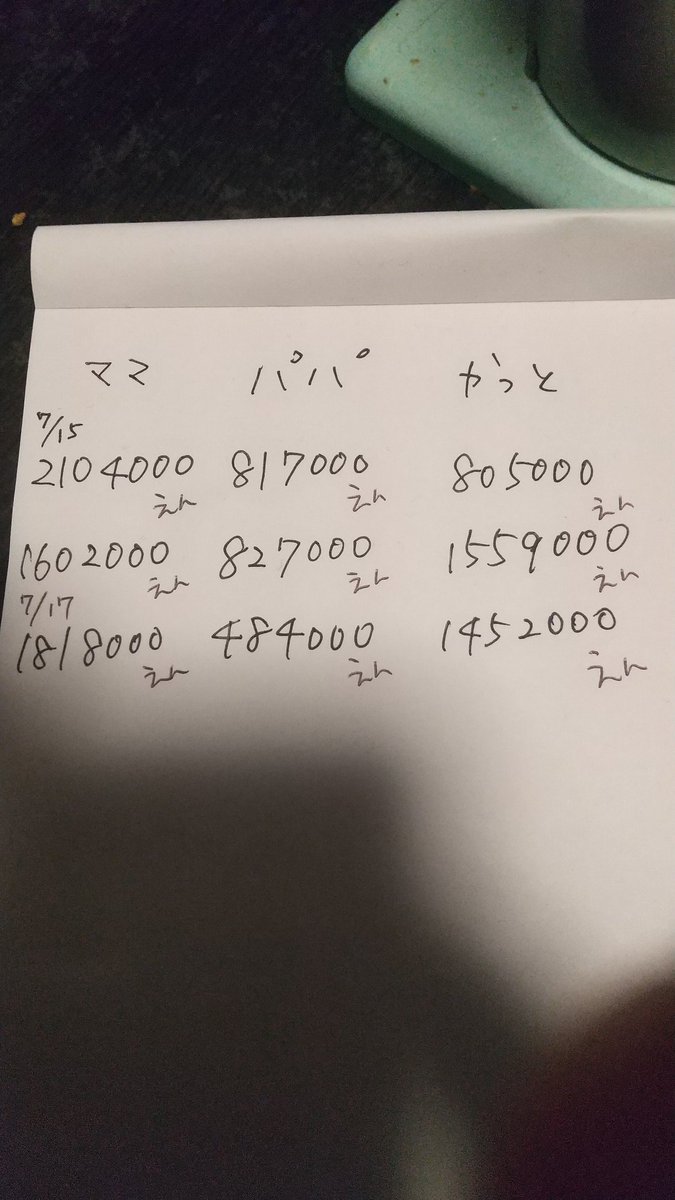 ママ パパ かっと
7/15
2104000 817000 805000
えん えん えん
1602000 827000 1559000
えん えん えん
7/17
1818000 484000 1452000
えん えん えん